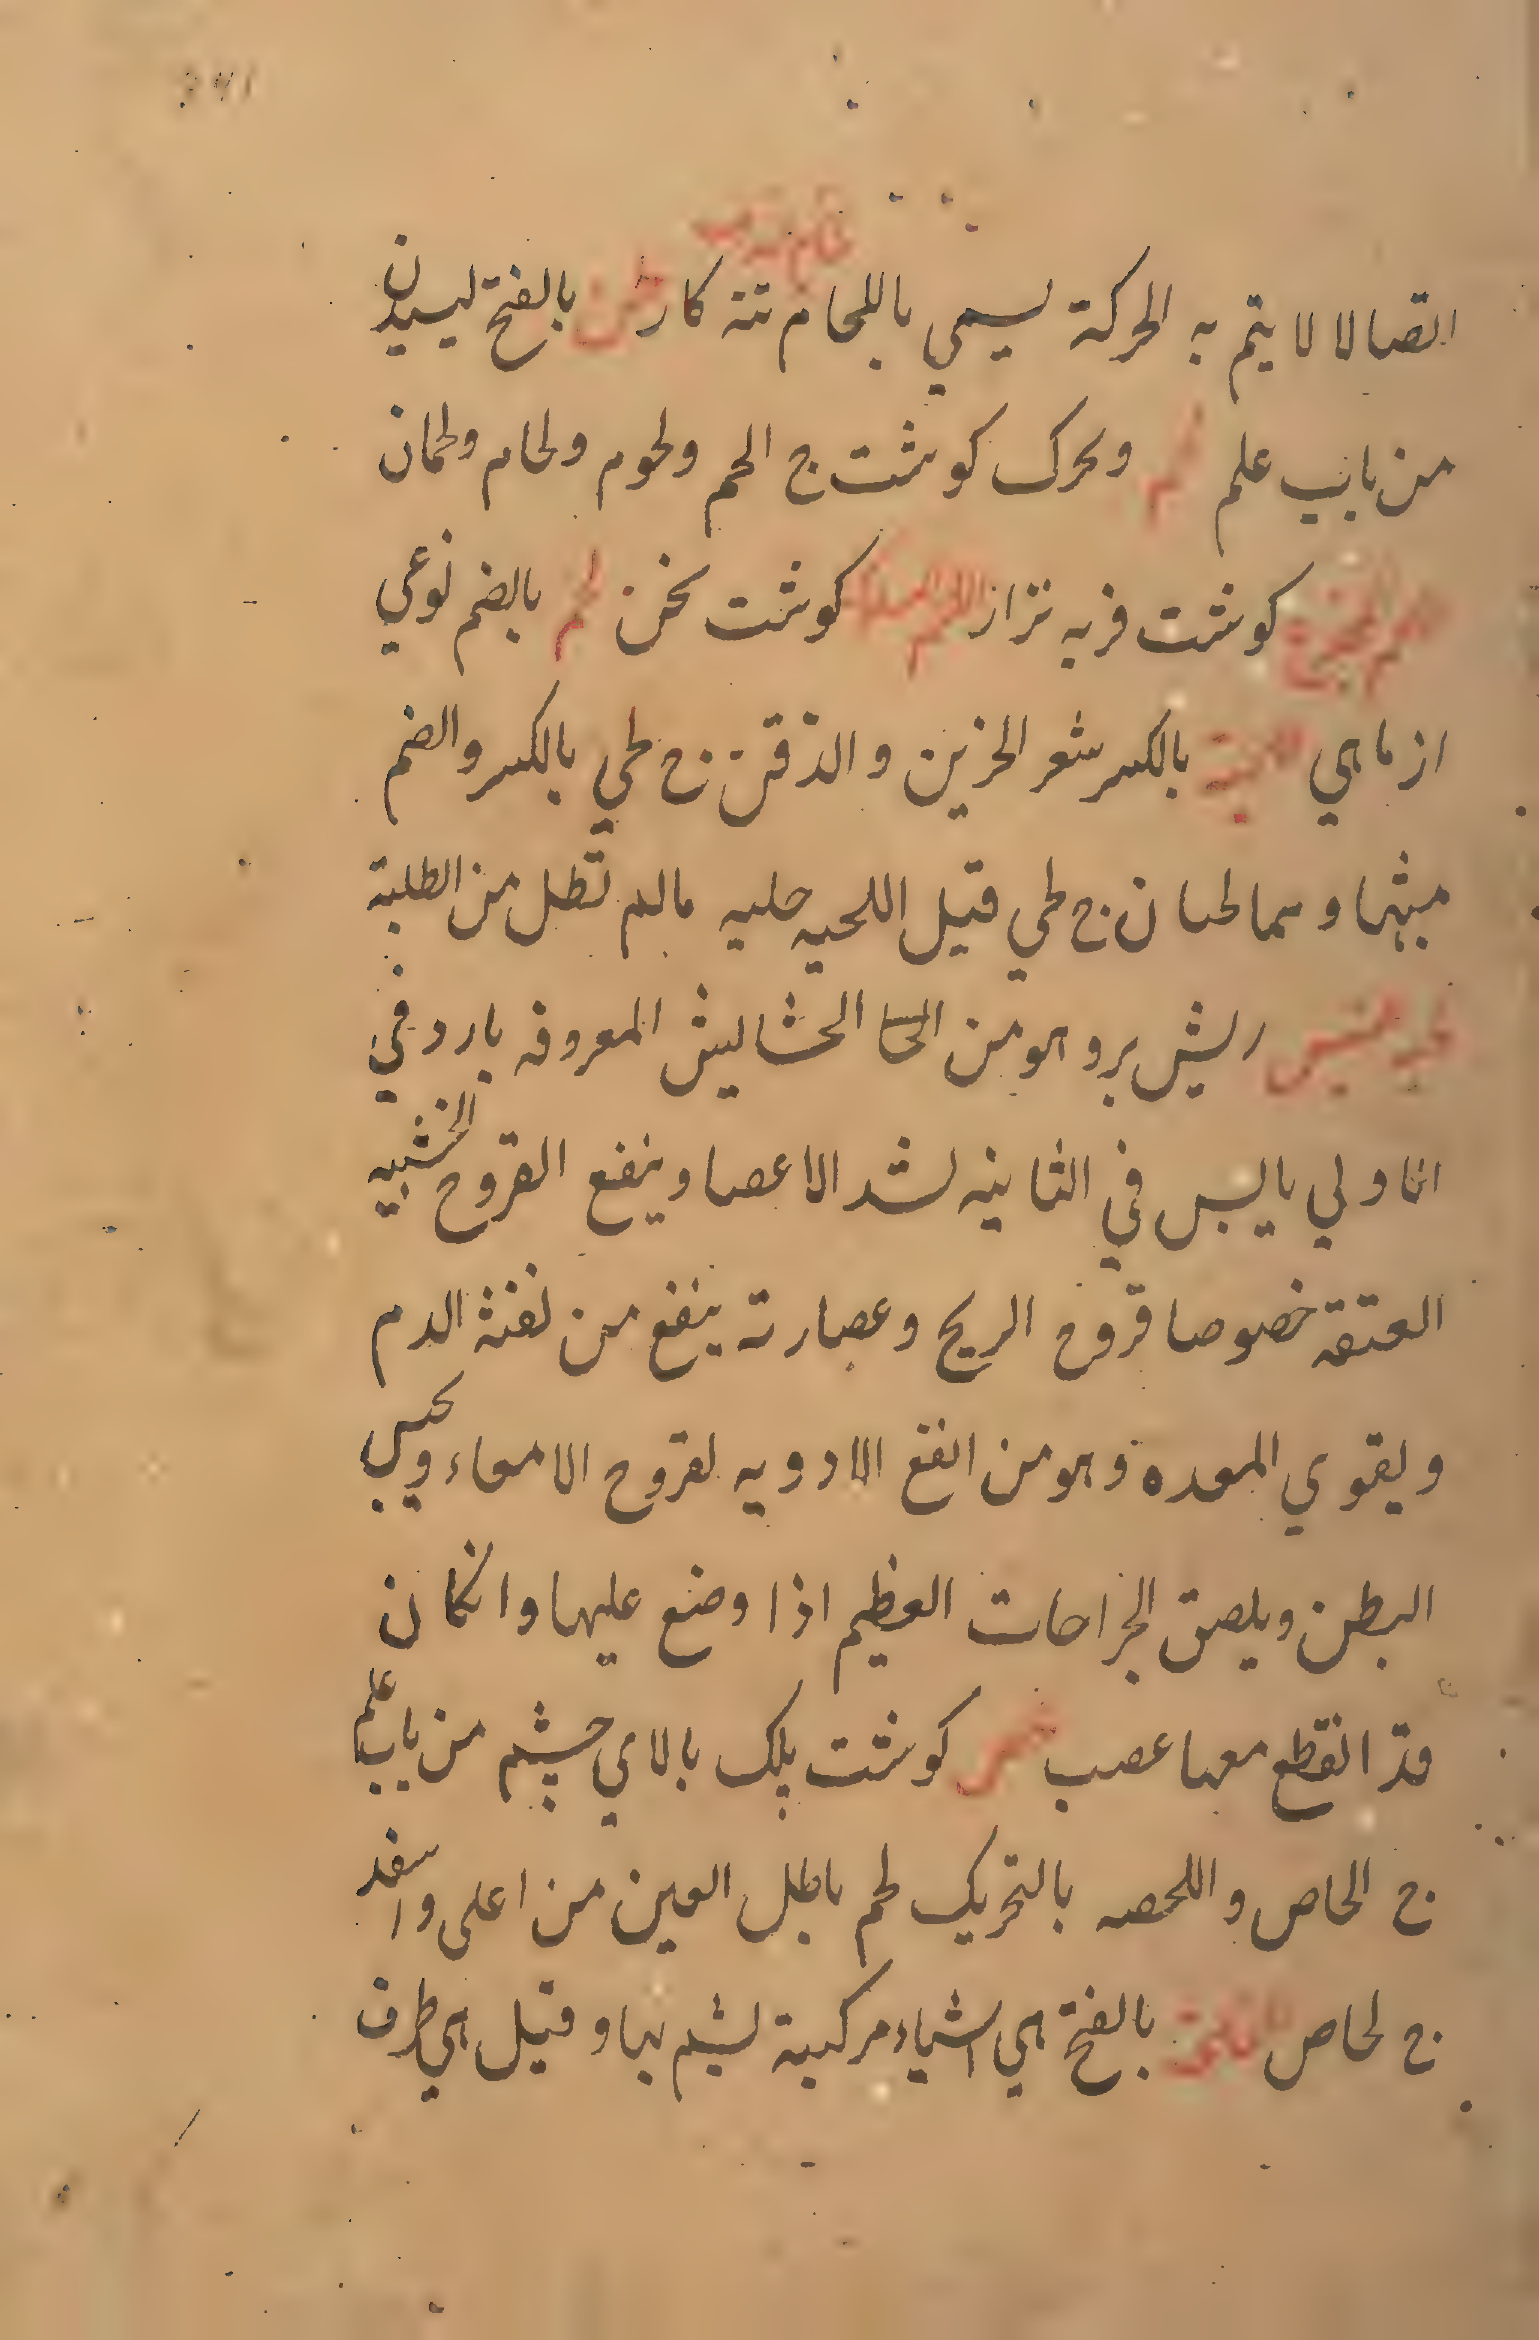 اتصالا لا يتم به الحركة يسمي باللحام تنه كار بالفتح ليسيدن
من باب علم لحم ويحرك كوشت ج الحم ولحوم ولحام ولحمان
كوشت فربه نزار كوشت سخن لحم بالضم نوعي
از ماهي لحية بالكسر شعر الخزين والذقن ج لحي بالكسر والضم
مبثها وسما لحيان ج لحي قيل اللحيه حليه مالم تطل من الطلبة
ريش برو هو من الحا الحشايش المعروفه بارد في
الاولي يابس في الثانيه لشد الاعصا وينفع القروح الخشبيه
العتقة خصوصا قروح الريح وعصارته ينفع من نفثة الدم
ويقوي المعده وهو من انفع الادويه لقروح الامعاء ويحبس
البطن ويلصق الجراحات العظيم اذا وضع عليها وانكان
قد انقطع معها عصب كوشت پلك بالاي چشم من باب علم
ج الحاص واللحصه بالتحريك لحم باطل العين من اعلى واسفد
ج لحاص بالفتح هي اشياء مركبية لشيم بها وقيل هي طرف